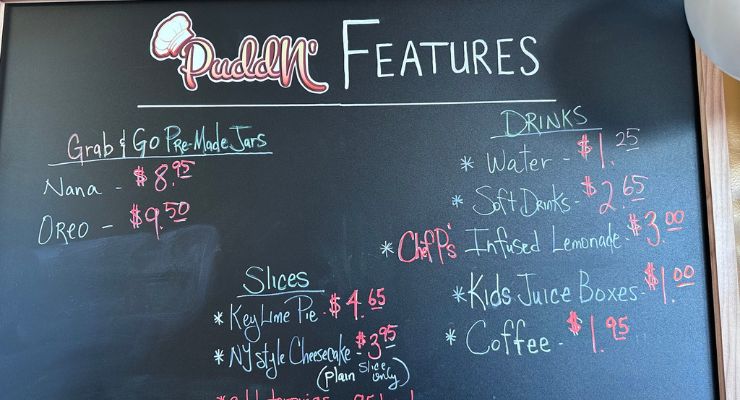 PuddN' FEATURES
Grab & Go Pre-Made Jars
Nana - $8.95
Oreo - $9.50
DRINKS
* Water - $1.25
* Soft Drinks - $2.65
* Chef P's Infused Lemonade - $3.00
* Kids Juice Boxes - $1.00
* Coffee - $1.95
Slices
* Key Lime Pie - $4.65
* NY Style Cheesecake - $3.95
(Plain Slice Only)